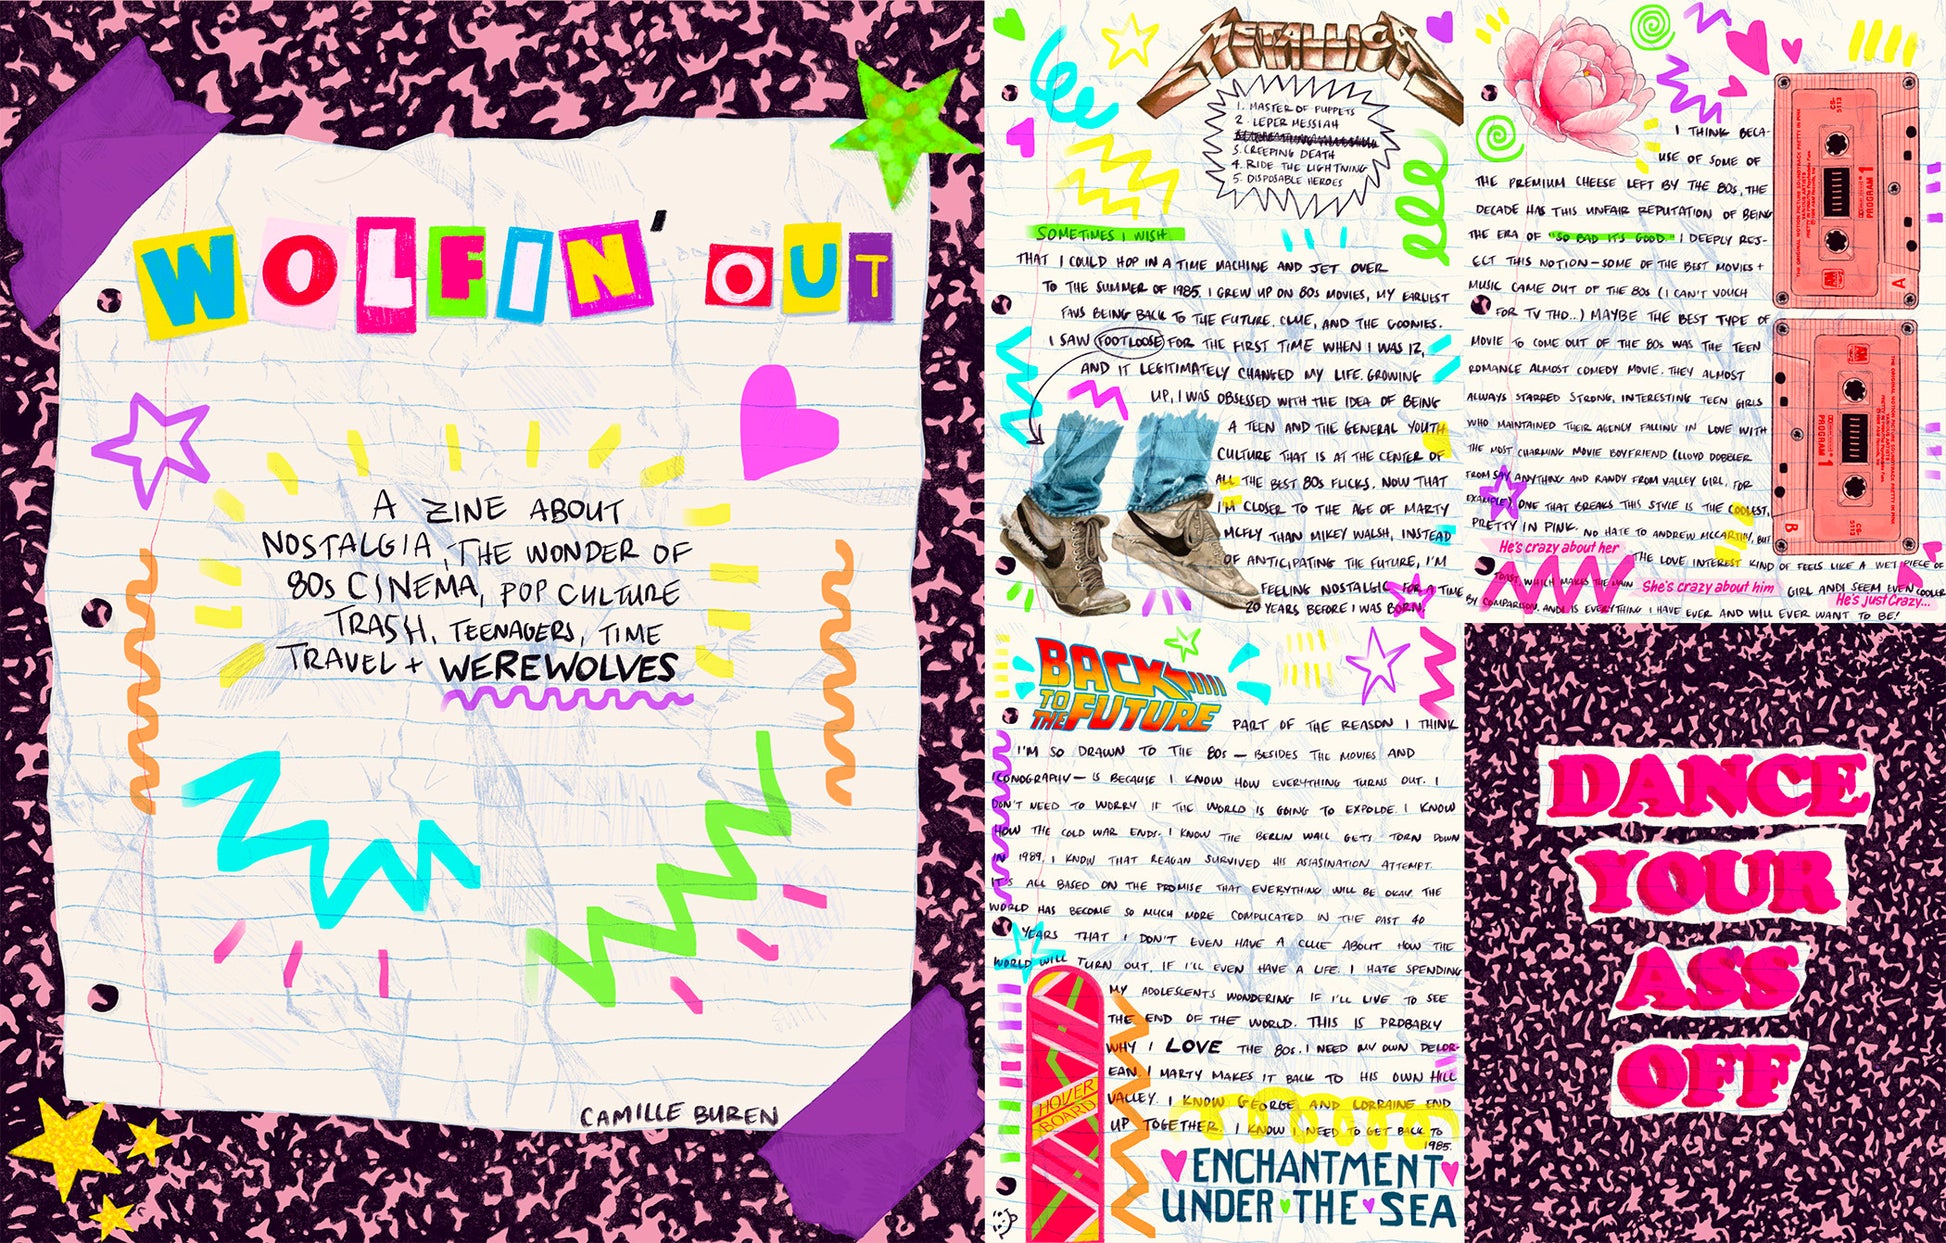 WOLFIN' OUT
A ZINE ABOUT
NOSTALGIA, THE WONDER OF
80s CINEMA, POP CULTURE
TRASH, TEENAGERS, TIME
TRAVEL + WEREWOLVES
CAMILLE BUREN
METALLICA
1. MASTER OF PUPPETS
2. LEPER MESSIAH
3. CREEPING DEATH
4. RIDE THE LIGHTNING
5. DISPOSABLE HEROES
SOMETIMES I WISH
THAT I COULD HOP IN A TIME MACHINE AND JET OVER
TO THE SUMMER OF 1985. I GREW UP ON 80s MOVIES, MY EARLIEST
FAVS BEING BACK TO THE FUTURE, CLUE, AND THE GOONIES.
I SAW FOOTLOOSE FOR THE FIRST TIME WHEN I WAS 12,
AND IT LEGITIMATELY CHANGED MY LIFE. GROWING
UP, I WAS OBSESSED WITH THE IDEA OF BEING
A TEEN AND THE GENERAL YOUTH
CULTURE THAT IS AT THE CENTER OF
ALL THE BEST 80s FLICKS. NOW THAT
I'M CLOSER TO THE AGE OF MARTY
MCFLY THAN MIKEY WALSH, INSTEAD
OF ANTICIPATING THE FUTURE, I'M
FEELING NOSTALGIC FOR A TIME
20 YEARS BEFORE I WAS BORN.
I THINK BECA-
USE OF SOME OF
THE PREMIUM CHEESE LEFT BY THE 80s, THE
DECADE HAS THIS UNFAIR REPUTATION OF BEING
THE ERA OF "SO BAD IT'S GOOD." I DEEPLY REJ-
ECT THIS NOTION—SOME OF THE BEST MOVIES +
MUSIC CAME OUT OF THE 80s (I CAN'T VOUCH
FOR TV THO..) MAYBE THE BEST TYPE OF
MOVIE TO COME OUT OF THE 80s WAS THE TEEN
ROMANCE ALMOST COMEDY MOVIE. THEY ALMOST
ALWAYS STARRED STRONG, INTERESTING TEEN GIRLS
WHO MAINTAINED THEIR AGENCY FALLING IN LOVE WITH
THE MOST CHARMING MOVIE BOYFRIEND (LLOYD DOBBLER
FROM SAY ANYTHING AND RANDY FROM VALLEY GIRL, FOR
EXAMPLE) ONE THAT BREAKS THIS STYLE IS THE COOLEST,
PRETTY IN PINK. NO HATE TO ANDREW MCCARTHY, BUT
He's crazy about her
THE LOVE INTEREST KIND OF FEELS LIKE A WET PIECE OF
TOAST, WHICH MAKES THE MAIN
She's crazy about him
GIRL ANDI SEEM EVEN COOLER
He's just Crazy...
BY COMPARISON. ANDI IS EVERYTHING I HAVE EVER AND WILL EVER WANT TO BE!
PROGRAM 1
A
PROGRAM 1
B
BACK
TO
THE FUTURE
PART OF THE REASON I THINK
I'M SO DRAWN TO THE 80s — BESIDES THE MOVIES AND
ICONOGRAPHY — IS BECAUSE I KNOW HOW EVERYTHING TURNS OUT. I
DON'T NEED TO WORRY IF THE WORLD IS GOING TO EXPOLDE. I KNOW
HOW THE COLD WAR ENDS. I KNOW THE BERLIN WALL GETS TORN DOWN
IN 1989. I KNOW THAT REAGAN SURVIVED HIS ASSASINATION ATTEMPT.
IT'S ALL BASED ON THE PROMISE THAT EVERYTHING WILL BE OKAY. THE
WORLD HAS BECOME SO MUCH MORE COMPLICATED IN THE PAST 40
YEARS THAT I DON'T EVEN HAVE A CLUE ABOUT HOW THE
WORLD WILL TURN OUT, IF I'LL EVEN HAVE A LIFE. I HATE SPENDING
MY ADOLESCENTS WONDERING IF I'LL LIVE TO SEE
THE END OF THE WORLD. THIS IS PROBABLY
WHY I LOVE THE 80s. I NEED MY OWN DELOR-
EAN. I MARTY MAKES IT BACK TO HIS OWN HILL
VALLEY. I KNOW GEORGE AND LORRAINE END
UP TOGETHER. I KNOW I NEED TO GET BACK TO
1985.
HOVER
BOARD
ENCHANTMENT
UNDER THE SEA
DANCE
YOUR
ASS
OFF